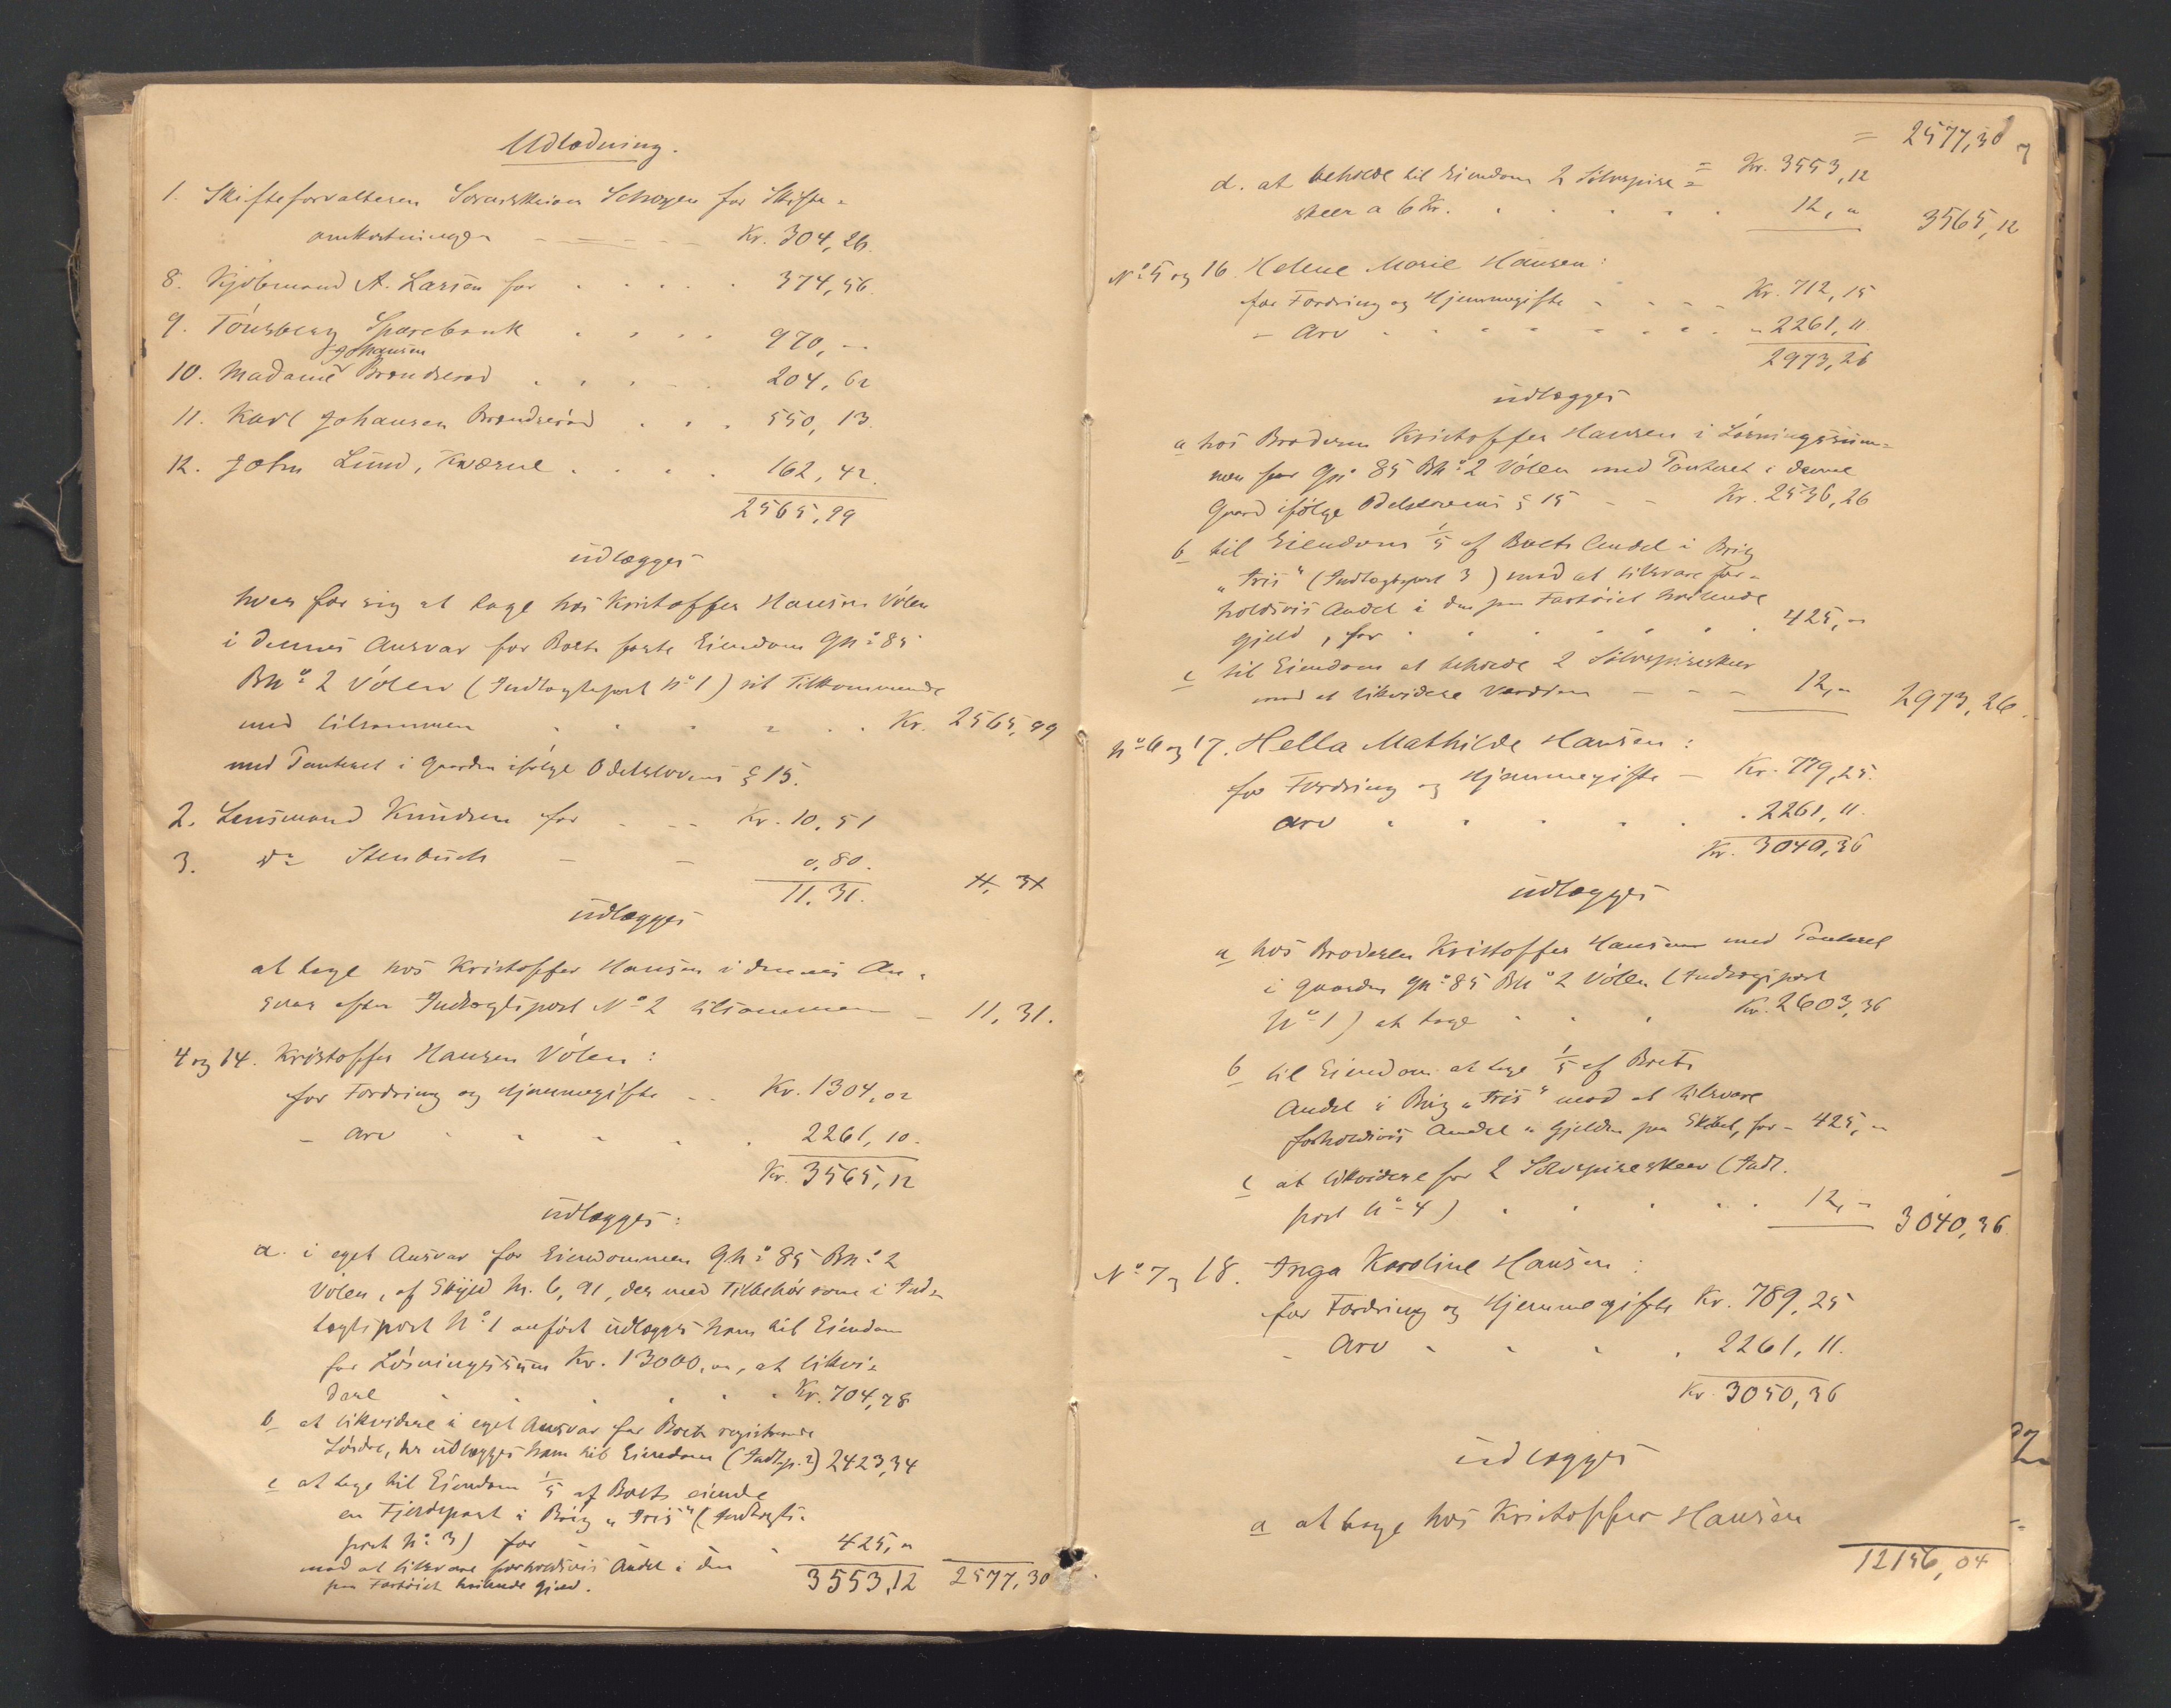 Udlodning.
1. Skifteforvalteren Sorenskriver Schøyen for Skifte-
omkostninger - - - - - Kr. 304,26.
8. Kjøbmand A. Larsen for . . . . . 374,56.
9. Tönsberg Sparebank . . . . 970, -
Johansen
10. Madame Brendsrød . . . . . 204,62
11. Karl Johansen Brendsrød . . . 550,13.
12. John Lund, Kværne . . . . 162,42.
2565,99
udlægges
hver for sig at tage hos Kristoffer Hansen Völen
i dennes Ansvar for Boets faste Eiendom Gn: 85
Bn: 2 Völen (Indlægtspost No 1) sit Tilkommende
med tilsammen . . . . . . Kr. 2565,99
med Panteret i Gaarden ifølge Odelslovens § 15.
2. Lensmand Knudsen for . - - Kr. 10,51
3. do Stenbuch - - 0,80.
11,31. 11,31
udlægges
at tage hos Kristoffer Hansen i dennes An-
svar efter Indlægtspost No 2 tilsammen - 11,31.
4 og 14. Kristoffer Hansen Völen:
for Fordring og Hjemmegifte - - Kr. 1304,02
- Arv . . . . . 2261,10.
Kr. 3565,12
udlægges:
a. i eget Ansvar for Eiendommen Gn: 85 Bn: 2
Völen, af Skyld M. 6,91, der med Tilbehør som i Ind-
lægtspost No 1 anført udlægges ham til Eiendom
for Løsningssum Kr. 13000,00, at likvi-
dere . . . . . . Kr. 704,78
b at likvidere i eget Ansvar for Boets registrerede
Løsøre, der udlægges ham til Eiendom (Indl.p. 2) 2423,34
c at tage til Eiendom 1/5 af Boets eiende
en Fjerdepart i Brig "Iris" (Indlægts-
post No 3) for . . . 425,"
mod at tilsvare forholdsvis Andel i den
paa Fartøiet hvilende Gjeld. 3553,12 2577,30
= 2577,30 7
= Kr. 3553,12
d. at beholde til Eiendom 2 Sölvspise-
skeer a 6 Kr. . . . . . . 12," 3565,12
No 5 og 16. Helene Marie Hansen:
for Fordring og Hjemmegifte . - - - Kr. 712,15
- Arv . . . . . . . . " 2261,11.
2973,26
udlægges
a hos Broderen Kristoffer Hansen i Løsningssum-
men for Gn: 85 Bn: 2 Völen med Panteret i denne
Gaard ifølge Odelslovens § 15 - - Kr. 2536,26
b til Eiendom 1/5 af Boets Andel i Brig
"Iris" (Indlægtspost 3) mod at tilsvare for-
holdsvis Andel i den paa Fartøiet hvilende
Gjeld, for . . . . . . . 425,"
c til Eiendom at beholde 2 Sölvspiseskeer
mod at likvidere Værdien - - - 12," 2973,26.
No 6 og 17. Hella Mathilde Hansen:
for Fordring og Hjemmegifte - Kr. 779,25.
Arv . . . . . . 2261,11.
Kr. 3040,36
udlægges
a hos Broderen Kristoffer Hansen med Panteret
i Gaarden Gn: 85 Bn: 2 Völen (Indlægtspost
No 1) at tage . . . Kr. 2603,36
b til Eiendom at tage 1/5 af Boets
Andel i Brig "Iris" mod at tilsvare
forholdsvis Andel i Gjelden paa Skibet, for - 425,"
c at likvidere for 2 Sölvspiseskeer (Indl.
post No 4) . . . . . . 12," 3040,36
No 7 og 18. Inga Karoline Hansen:
for Fordring og Hjemmegifte Kr. 789,25
- Arv . . . . 2261,11.
Kr. 3050,36
udlægges
a at tage hos Kristoffer Hansen
12156,04